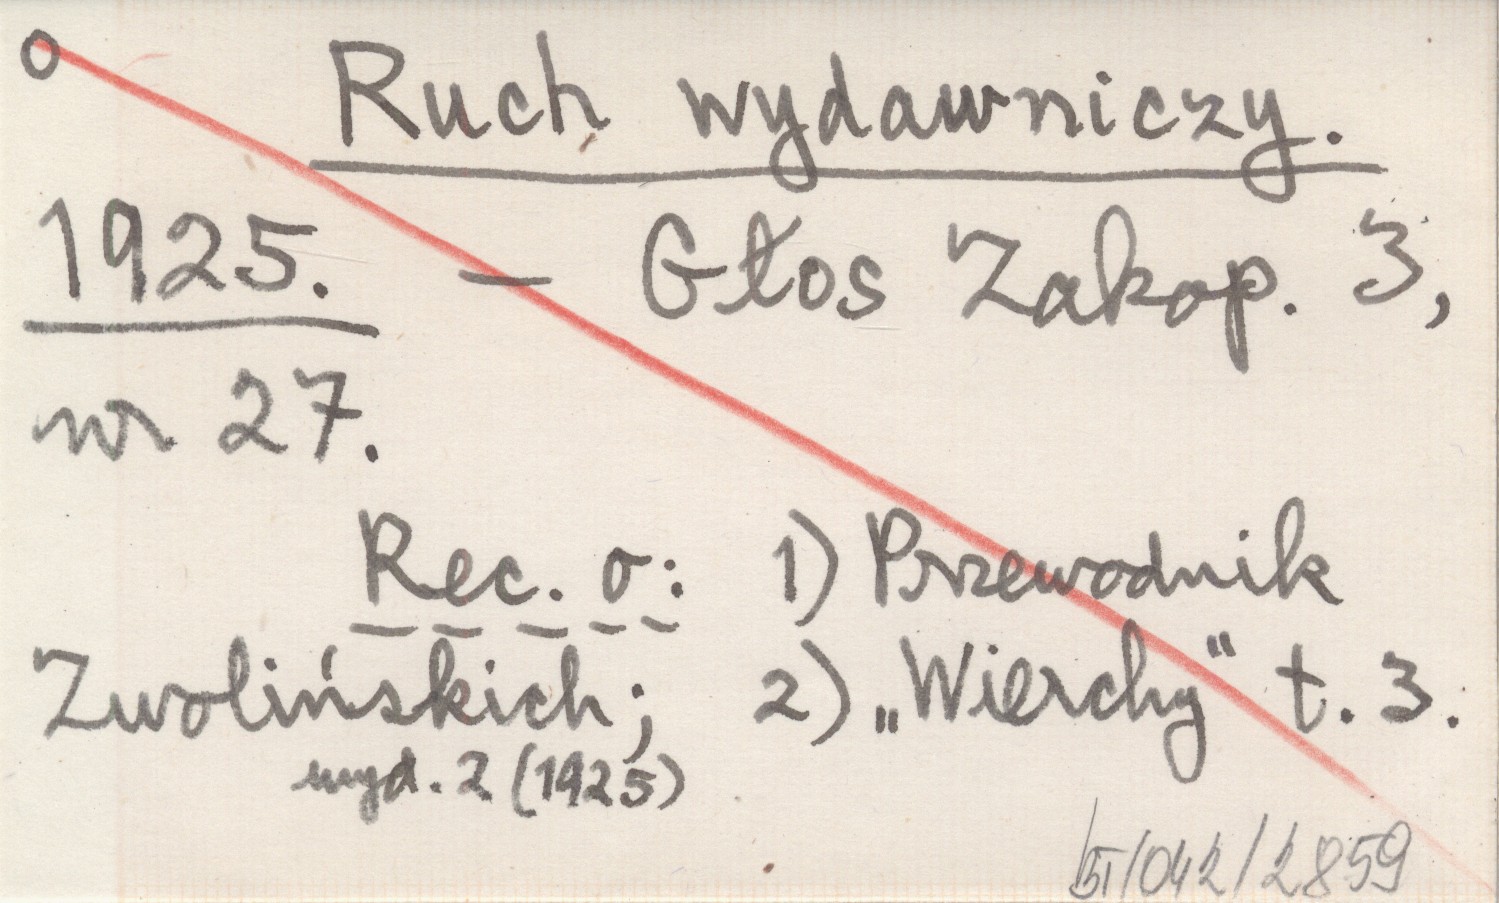 o Ruch wydawniczy.
1925. — Głos Zakop. 3,
nr 27.
Rec. o: 1) Przewodnik
Zwolińskich; 2) „Wierchy" t. 3.
wyd. 2 (1925)
/042/2859